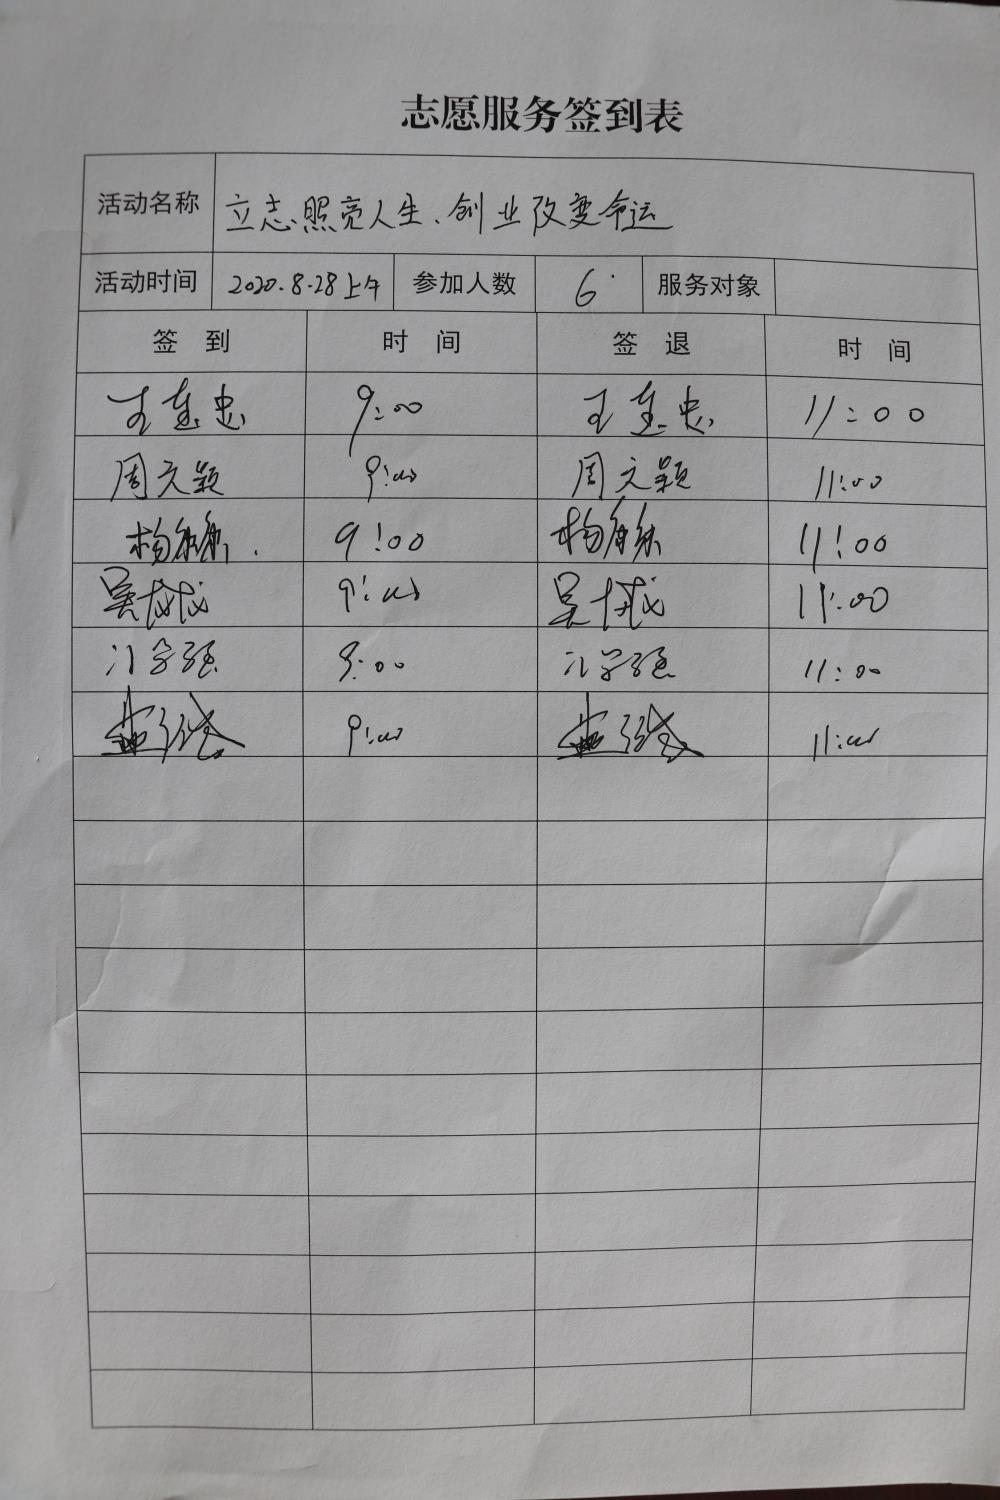 志愿服务签到表
活动名称 立志照亮人生、创业改变命运
活动时间 2020.8.28上午 参加人数 6 服务对象
签到 时间 签退 时间
9:00 11:00
周文颖 9:00 周文颖 11:00
杨 9:00 杨 11:00
吴 9:00 吴 11:00
9:00 11:00
9:00 11:00